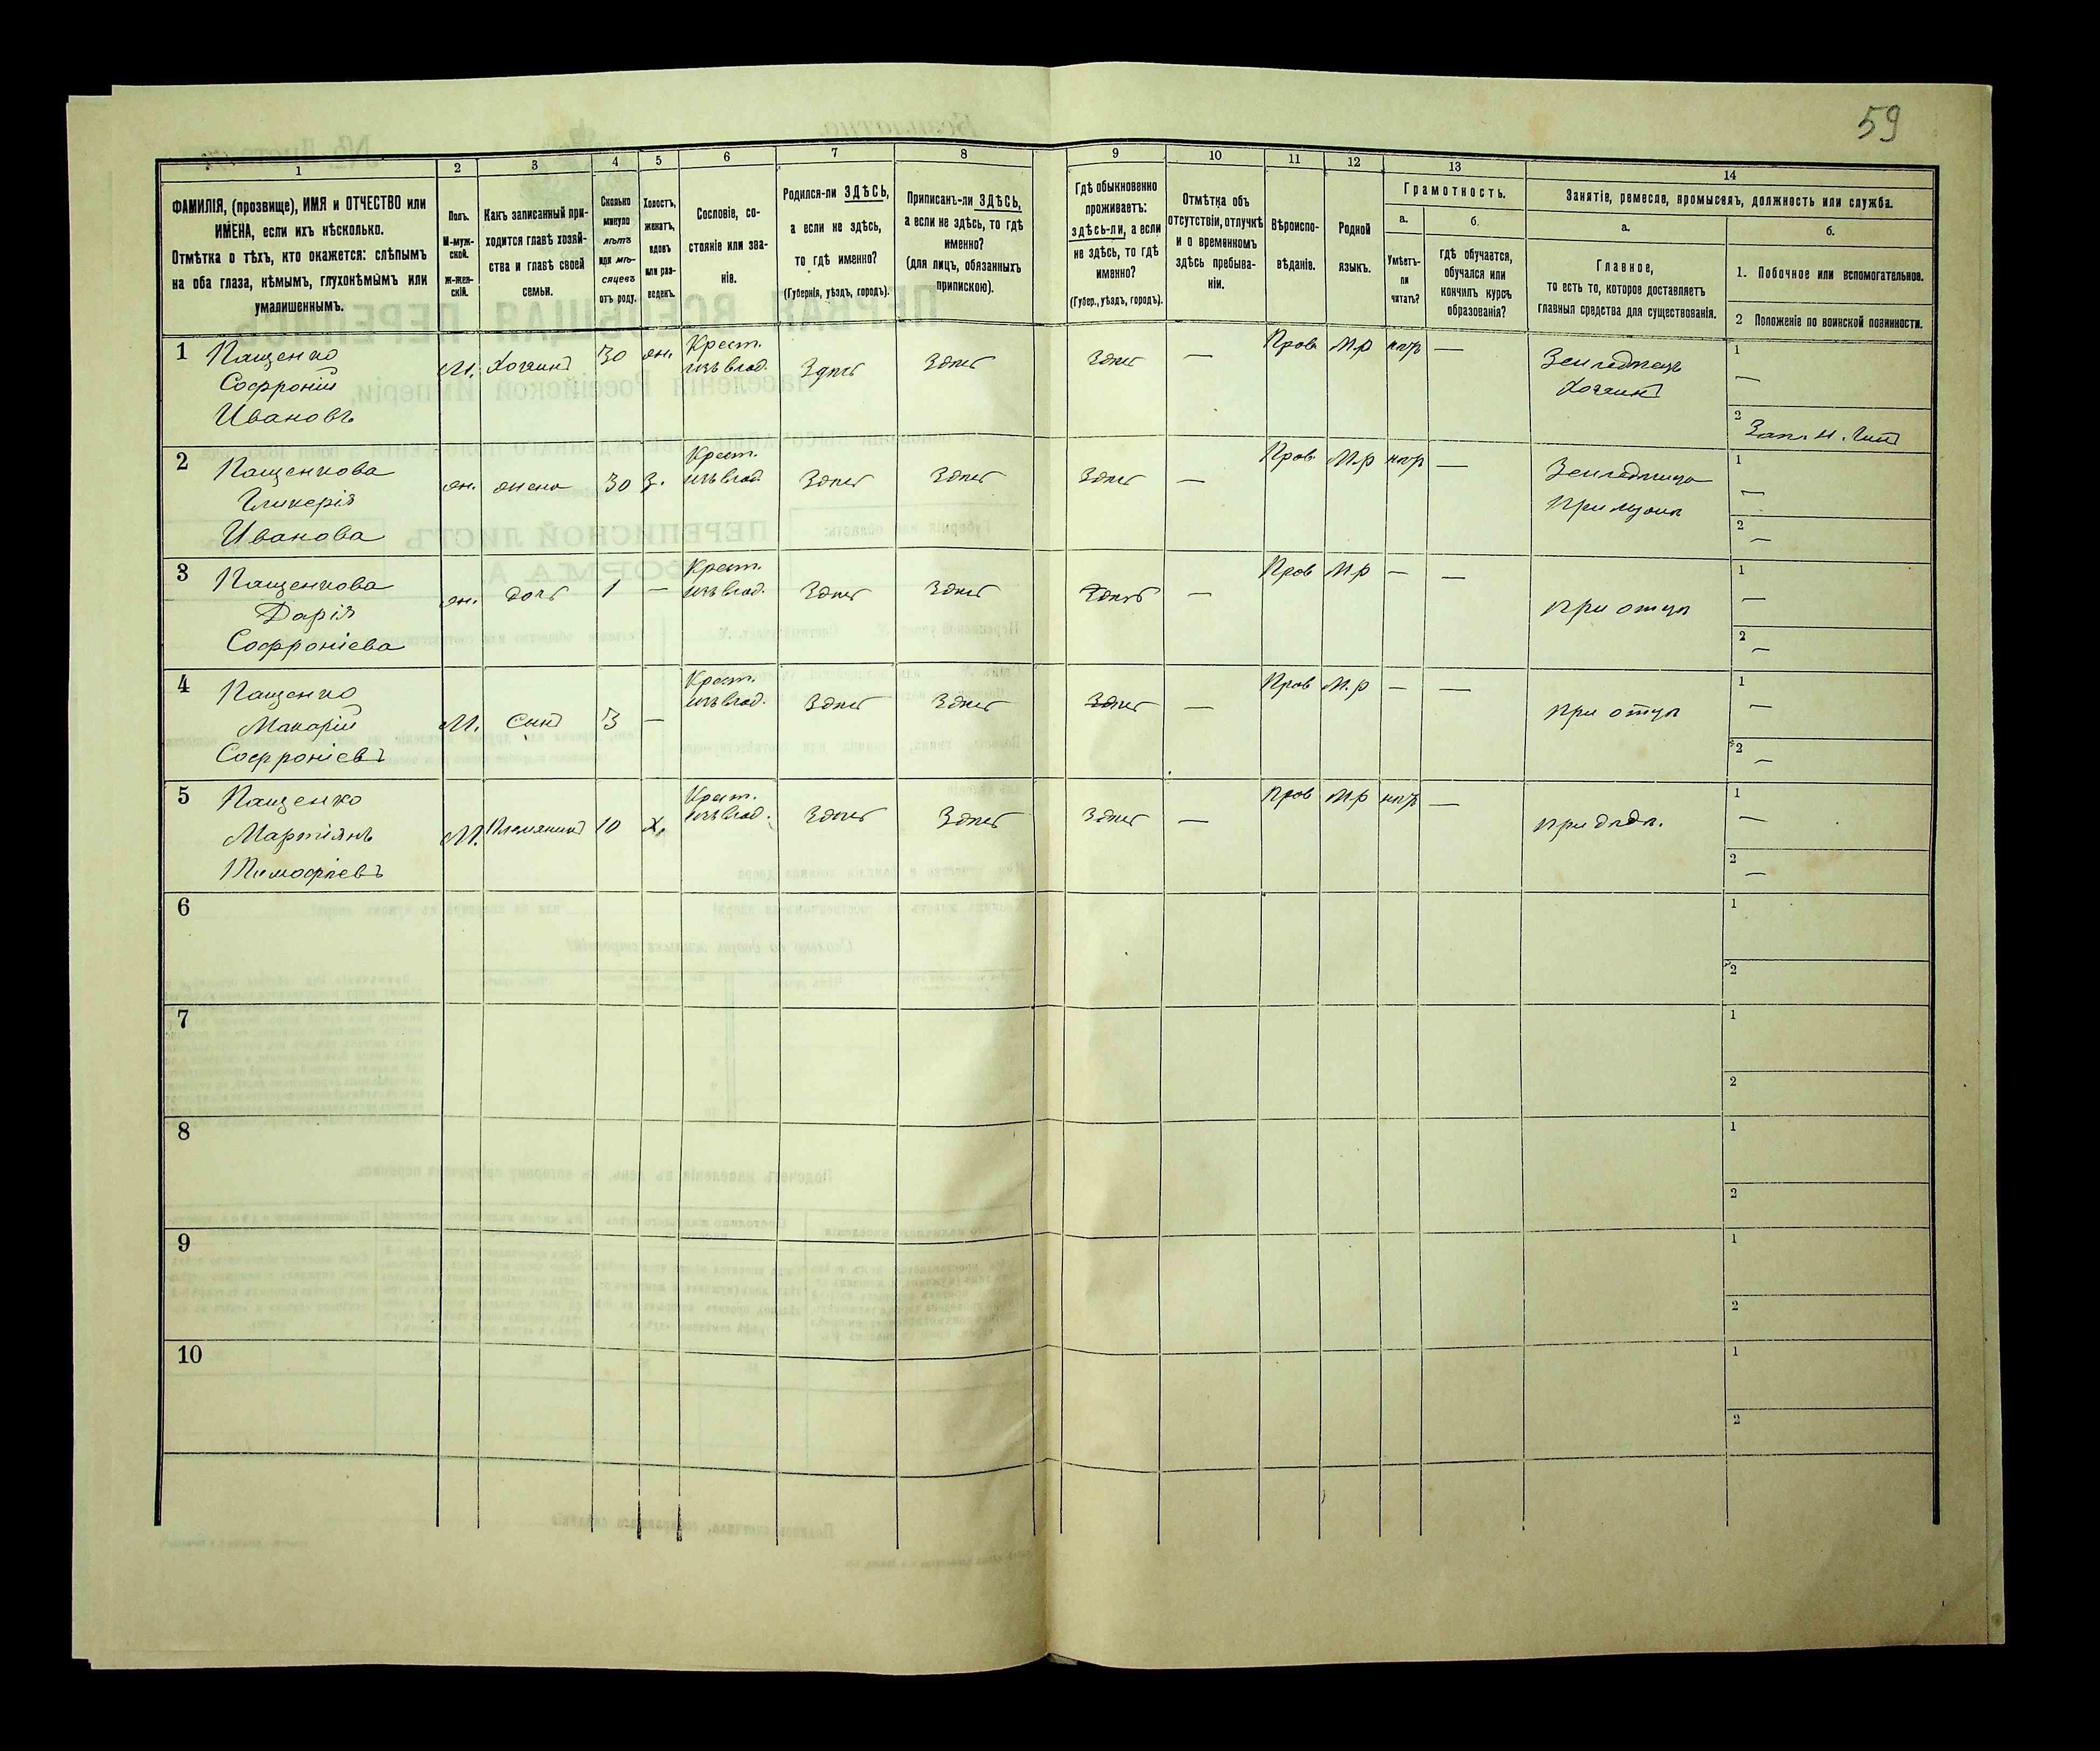 59
1
2
3
4
5
6
7
8
9
10
11
12
13
14
ФАМИЛІЯ, (прозвище), ИМЯ и ОТЧЕСТВО или
ИМЕНА, если ихъ нѣсколько.
Отмѣтка о тѣхъ, кто окажется: слѣпымъ
на оба глаза, нѣмымъ, глухонѣмымъ или
умалишеннымъ.
Полъ.
М-муж-
ской.
Ж-жен-
скій.
Какъ записанный при-
ходится главѣ хозяй-
ства и главѣ своей
семьи.
Сколько
минуло
лѣтъ
или мѣ-
сяцевъ
отъ роду.
Холостъ,
женатъ,
вдовъ
или раз-
веденъ.
Сословіе, со-
стояніе или зва-
ніе.
Родился-ли ЗДѢСЬ,
а если не здѣсь,
то гдѣ именно?
(Губернія, уѣздъ, городъ).
Приписанъ-ли ЗДѢСЬ,
а если не здѣсь, то гдѣ
именно?
(для лицъ, обязанныхъ
припискою).
Гдѣ обыкновенно
проживаетъ:
здѣсь-ли, а если
не здѣсь, то гдѣ
именно?
(Губер., уѣздъ, городъ).
Отмѣтка объ
отсутствіи, отлучкѣ
и о временномъ
здѣсь пребыва-
ніи.
Вѣроиспо-
вѣданіе.
Родной
языкъ.
Грамотность.
а.
Умѣетъ-
ли
читать?
б.
Гдѣ обучается,
обучался или
кончилъ курсъ
образованія?
Занятіе, ремесло, промыселъ, должность или служба.
а.
Главное,
то есть то, которое доставляетъ
главныя средства для существованія.
б.
1. Побочное или вспомогательное.
2 Положеніе по воинской повинности.
1 Пащенко
Софроній
Ивановъ
М. Хозяинъ 30 жн. Крест.
изъ влад. Здѣсь Здѣсь Здѣсь — Прав М.р нгр —
Земледѣлецъ
Хозяинъ
1 —
2
2 Пащенкова
Гликерія
Иванова
жн. жена 30 З. Крест.
изъ влад. Здѣсь Здѣсь Здѣсь — Прав М.р нгр —
при мужѣ
1 —
2 —
3 Пащенкова
Дарія
Софроніева
жн. дочь 1 — Крест.
изъ влад. Здѣсь Здѣсь Здѣсь — Прав М.р — —
при отцѣ
1 —
2 —
4 Пащенко
Макарій
Софроніевъ
М. Сынъ 3 — Крест.
изъ влад. Здѣсь Здѣсь Здѣсь — Прав М.р — —
при отцѣ
1 —
2 —
5 Пащенко
Мартіянъ
Тимофѣевъ
М. Племяникъ 10 х. Крест.
изъ влад. Здѣсь Здѣсь Здѣсь — Прав М.р нгр —
при дядѣ.
1 —
2 —
6
1
2
7
1
2
8
1
2
9
1
2
10
1
2